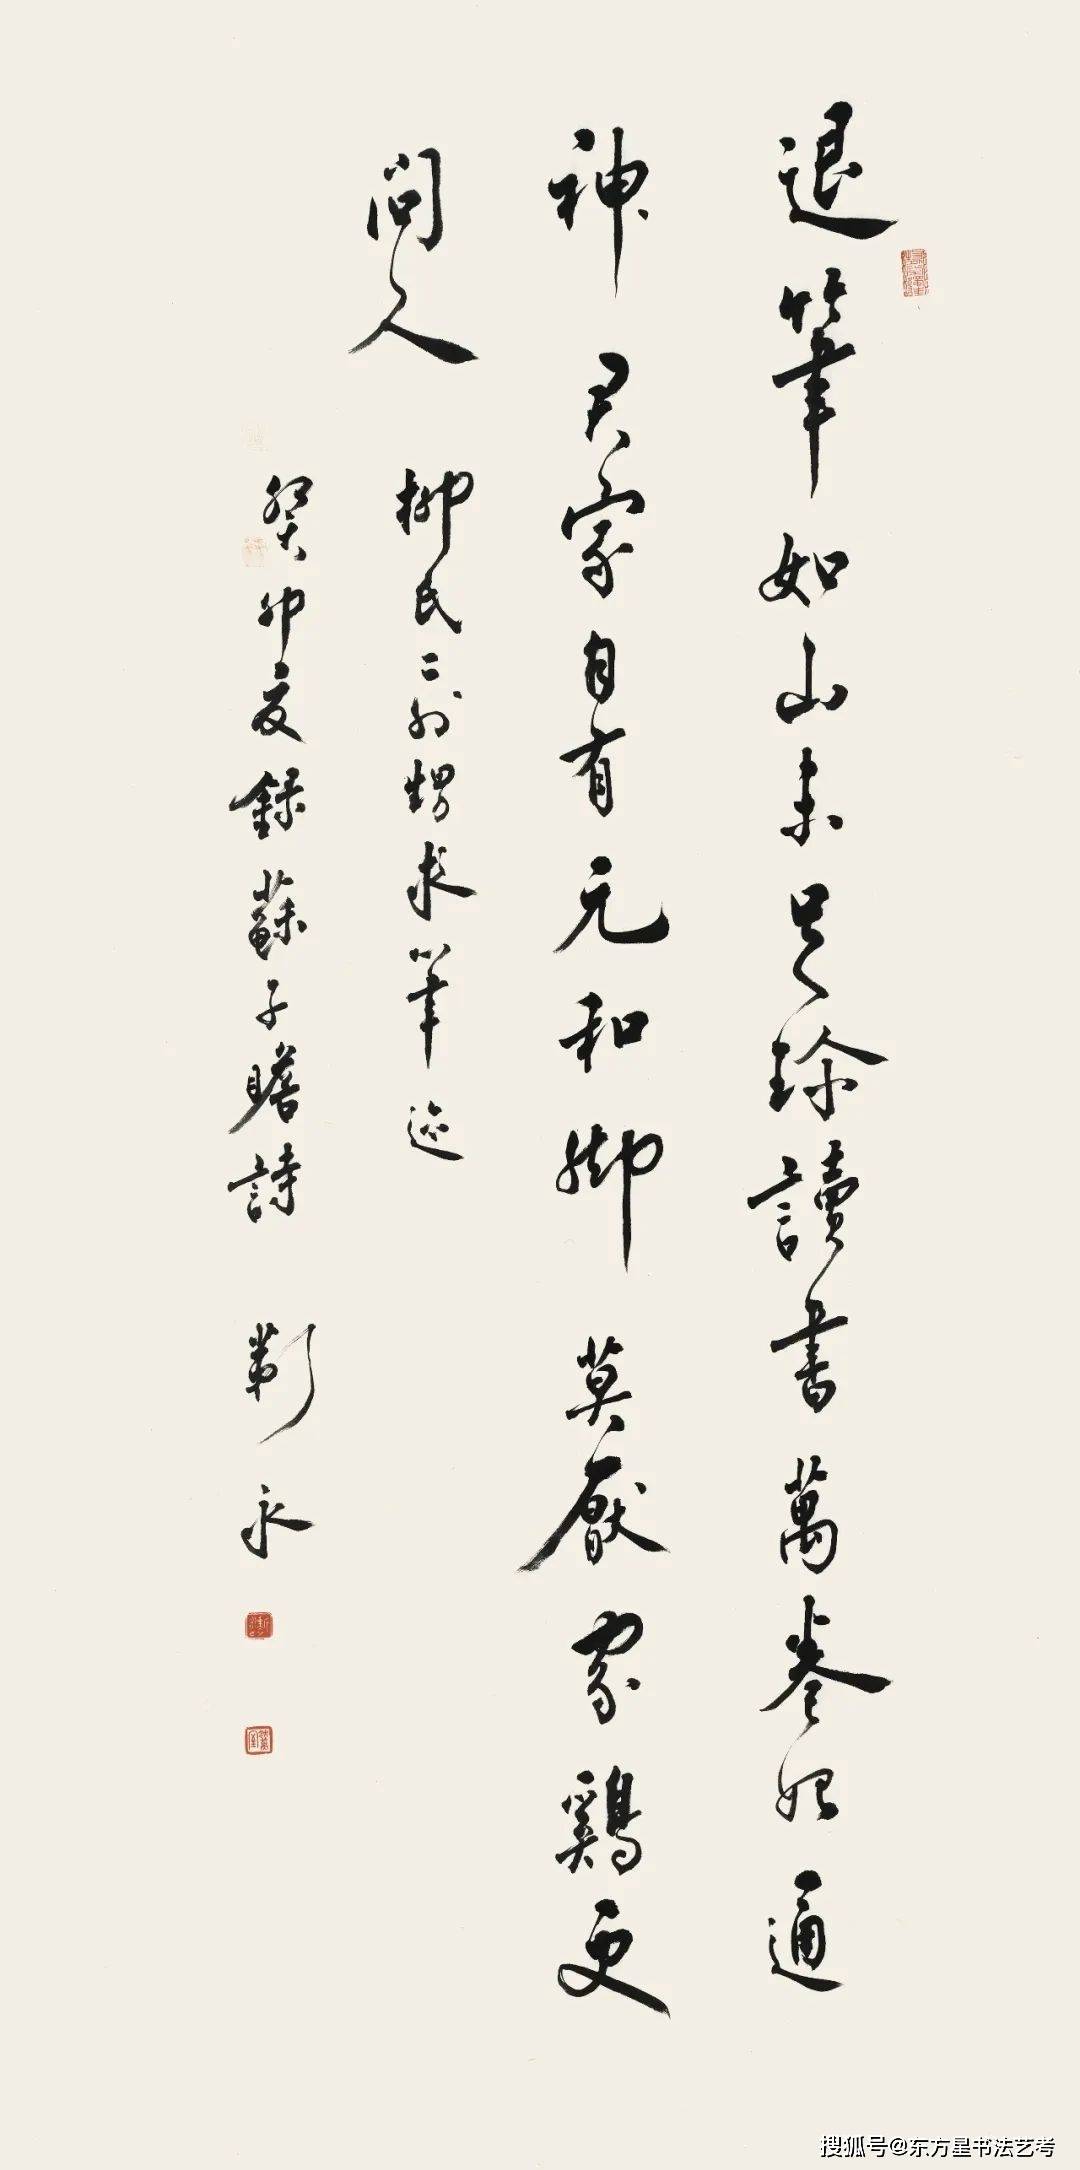 退筆如山未足珍讀書萬卷始通
神君家自有元和脚莫厭家鷄更
問人
柳氏二外甥求筆迹
癸卯夏錄蘇子瞻詩 靳永
搜狐号@东方星书法艺考